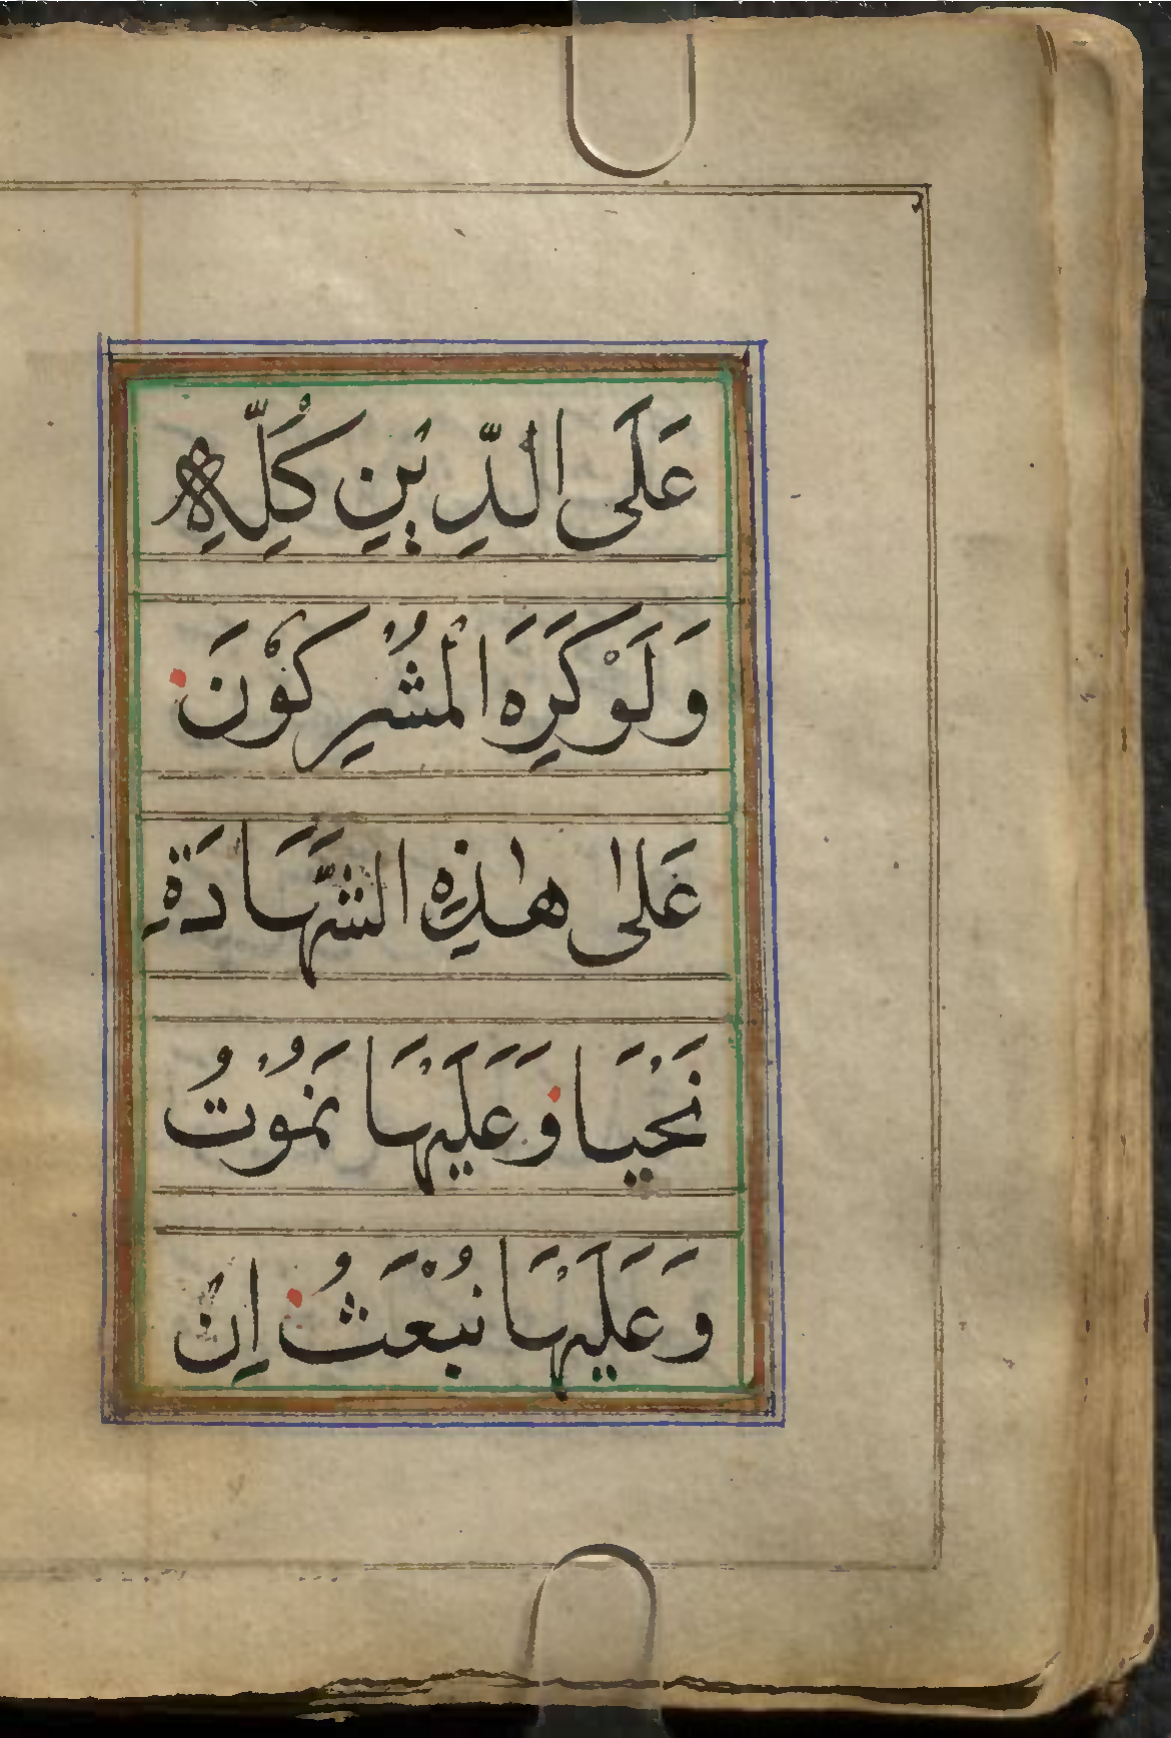 عَلَى الدِّيْنِ كُلِّهٖ
وَلَوْ كَرِهَ الْمُشْرِكُوْنَ
عَلٰى هٰذِهِ الشَّهَادَةِ
نَحْيَا وَعَلَيْهَا نَمُوْتُ
وَعَلَيْهَا نُبْعَثُ اِنْ